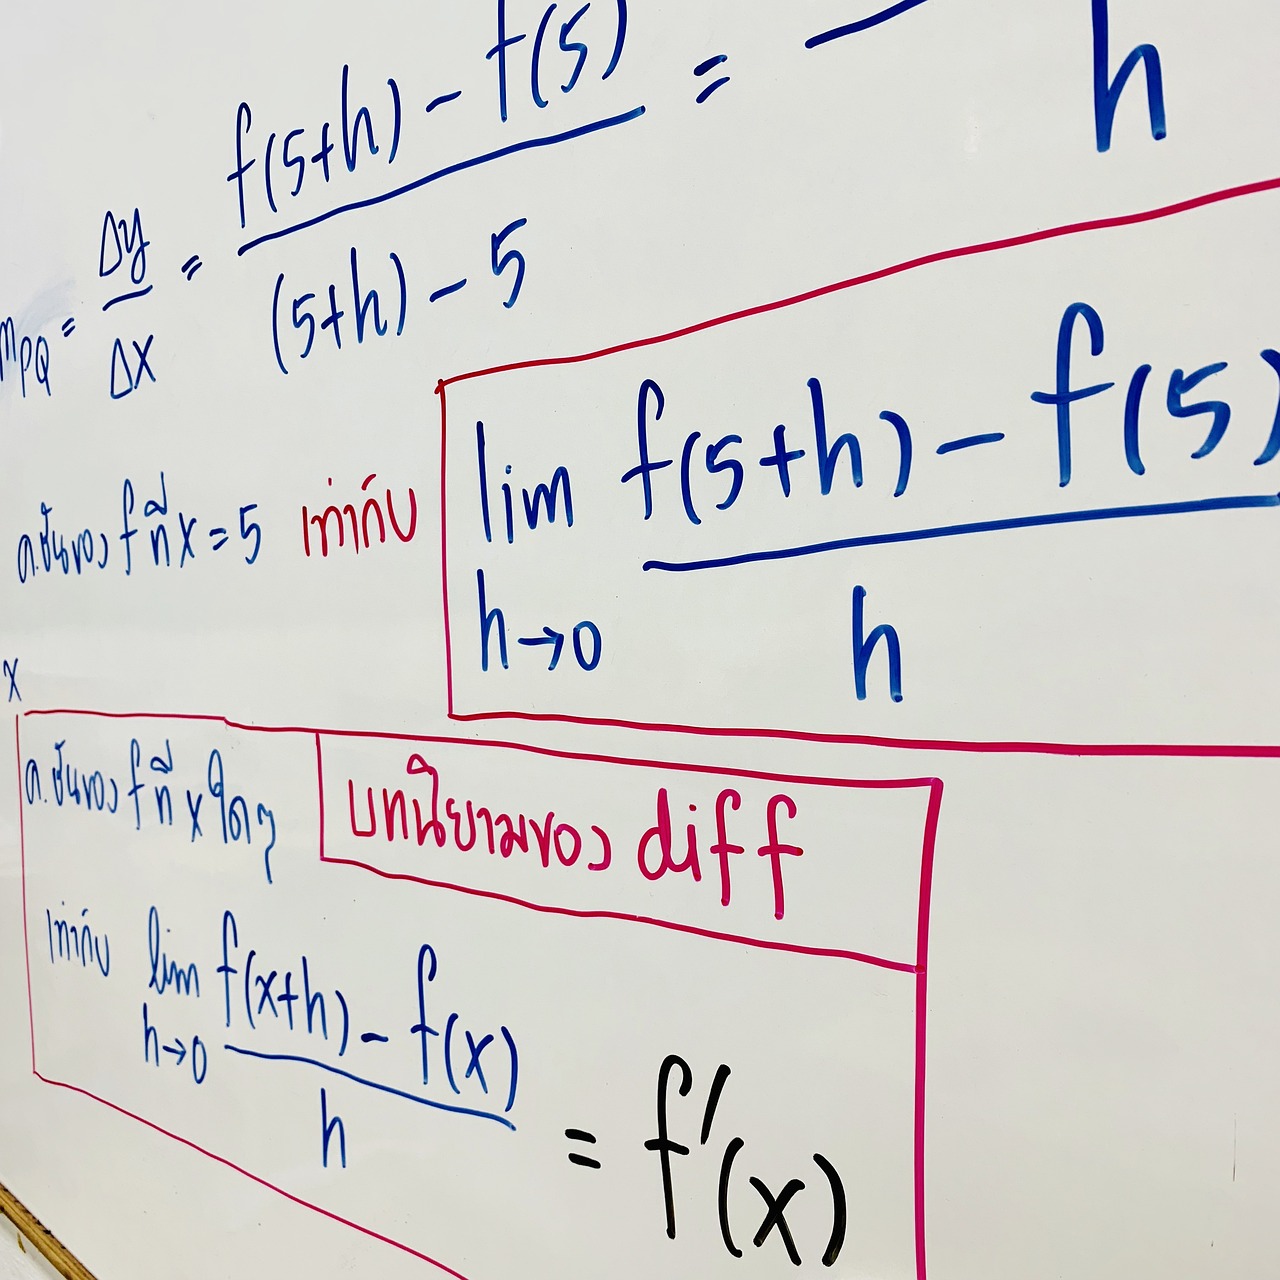 m_PQ = Δy/Δx = (f(5+h) - f(5))/((5+h) - 5) = /h
ค.ชันของ f ที่ x = 5 เท่ากับ lim h→0 (f(5+h) - f(5))/h
x
ค.ชันของ f ที่ x ใดๆ
บทนิยามของ diff
เท่ากับ lim h→0 (f(x+h) - f(x))/h = f'(x)